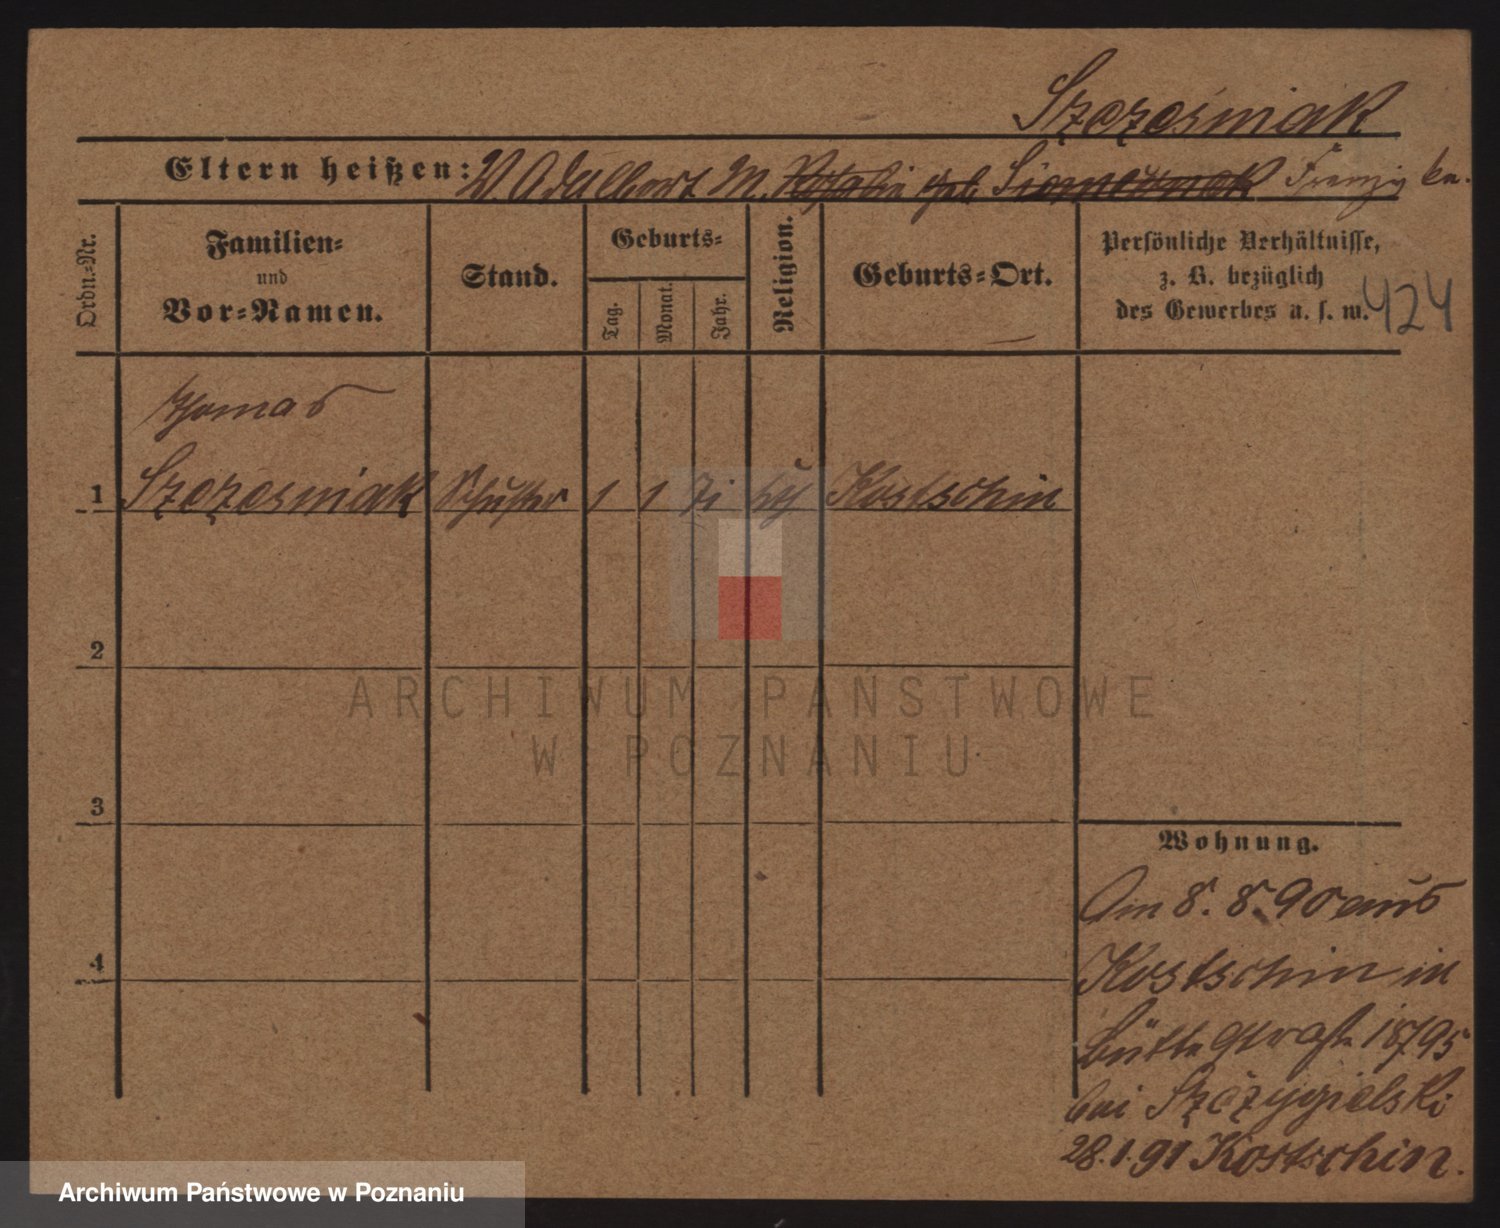 Szczesniak
Eltern heißen: V. Adalbert M. geb.
Ordn.-Nr.
Familien-
und
Vor-Namen.
Stand.
Geburts-
Tag.
Monat.
Jahr.
Religion.
Geburts-Ort.
Persönliche Verhältnisse,
z. B. bezüglich
des Gewerbes u. s. w.
424
Thomas
1 Szczesniak Schuster 1 1 71 Kostschin
2
3
4
Wohnung.
Am 8. 8. 90 aus
Kostschin in
Büttelstraße 18/95
bei Szczygielski
28.1.91 Kostschin.
ARCHIWUM PAŃSTWOWE
W POZNANIU
Archiwum Państwowe w Poznaniu